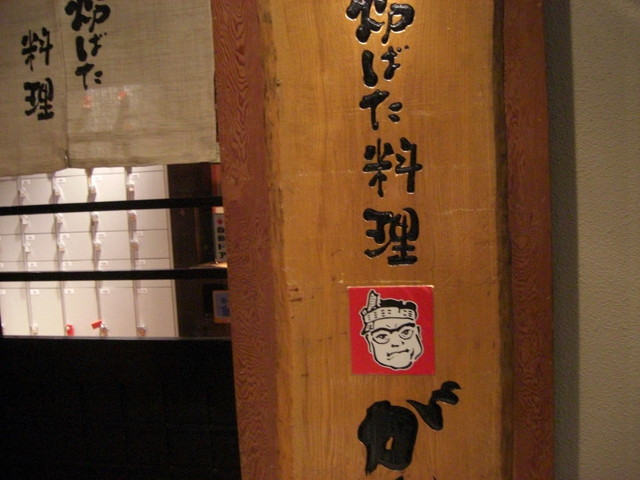 炉ばた
料理
炉ばた料理
が